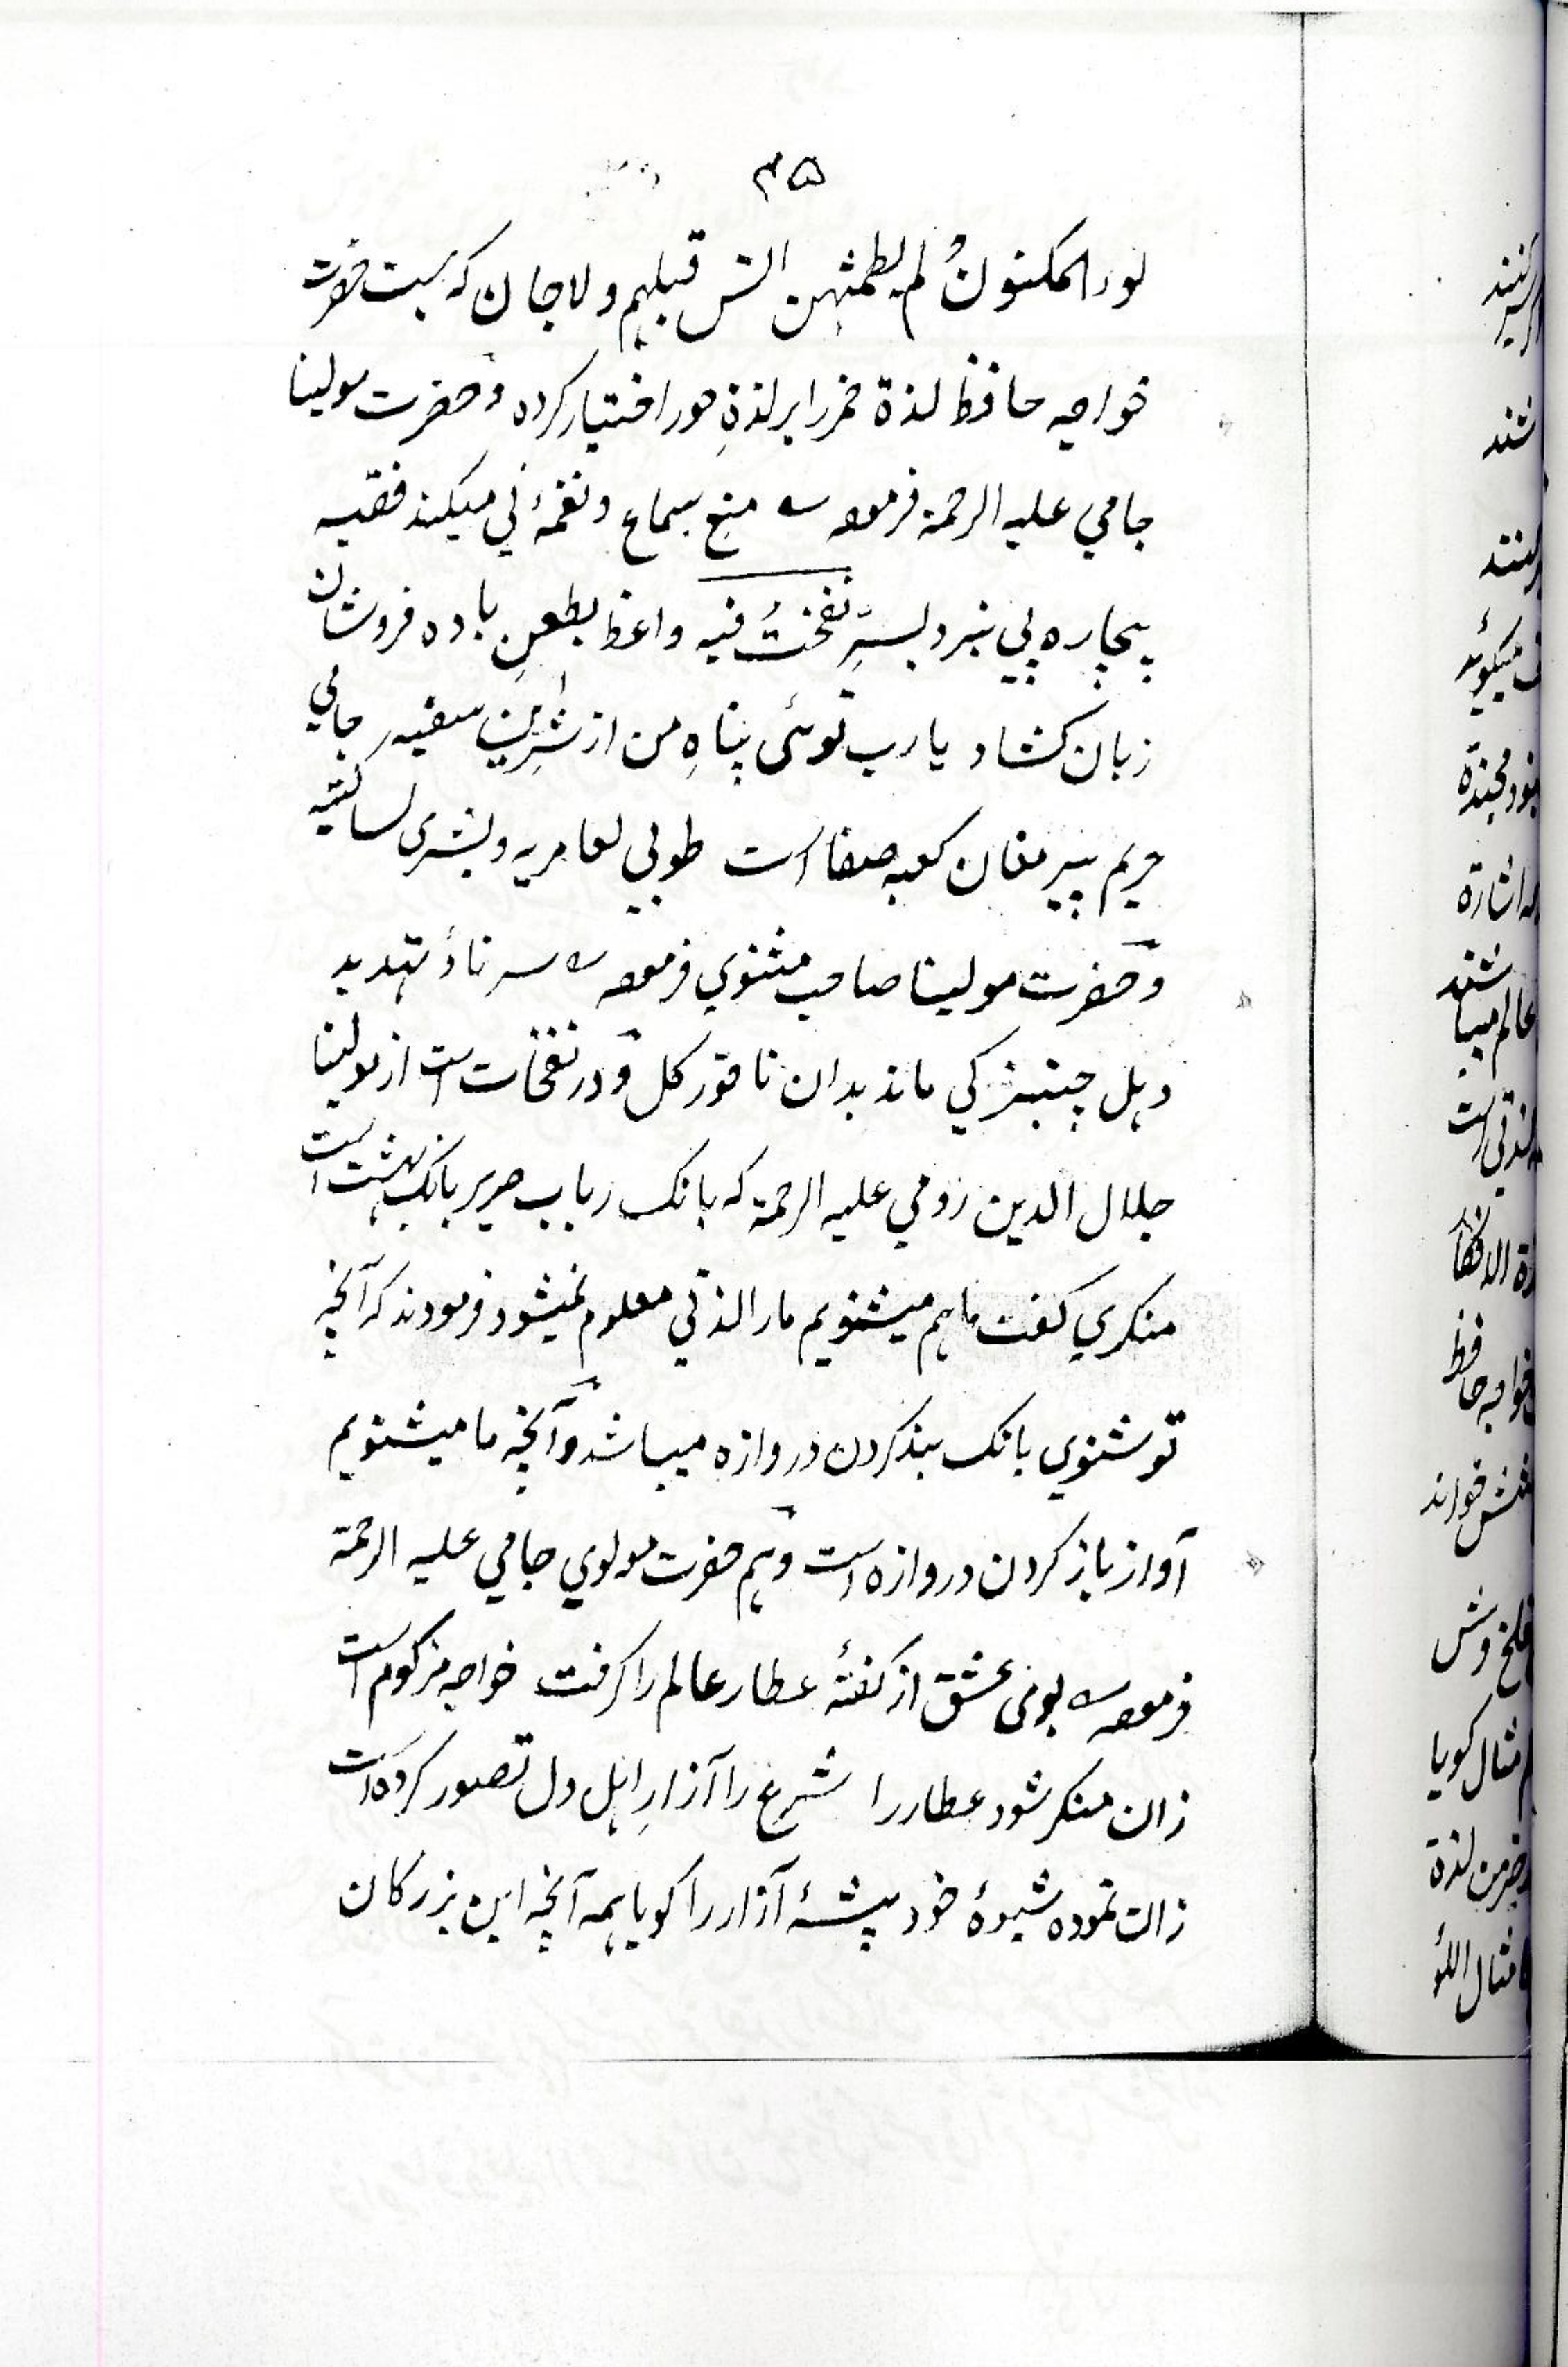 ۴۵
لور المکنونُ لم یطمثهن انس قبلهم ولا جان که بیت حضرت
خواجه حافظ لذة خمر را بر لذةِ حور اختیار کرده و حضرت مولینا
جامي علیه الرحمة فرموده منع سماع و نغمهٔ ني میکند فقیه
بیچاره پي نبرد بسرِّ نفختُ فیه واعظ بطعنِ باده فروشان
زبان کشاد یارب توئی پناهِ من از شرِ این سفیه جامي
حریم پیر مغان کعبه صفا است طوبي لعامریه و بشری لساکنیه
و حضرت مولینا صاحب مثنوي فرموده سرناؤ تهدید
دهل چیزیکي ماند بدان ناقور کل و در نفخات است از مولینا
جلال الدین رومي علیه الرحمة که بانک رباب صریر بانک بهشت است
منکري کفت ما هم میشنویم مارا لذتي معلوم نمیشود فرمودند که آنچه
تو شنوي بانک بند کردن دروازه میباشد و آنچه ما میشنویم
آواز باز کردن دروازه است و هم حضرت مولوي جامي علیه الرحمة
فرموده بوی عشق از کفتهٔ عطار عالم را کرفت خواجه مزکوم است
زان منکر شود عطار را شرع را آزارِ اهل دل تصور کرده است
زانت نموده شیوهٔ خود پیشهٔ آزار را کویا همه آنچه این بزرکان
شند
میکوئد
اشارة
شند
خواجه حافظ
خوراند
مثال کویا
لذة
مثال اللؤ